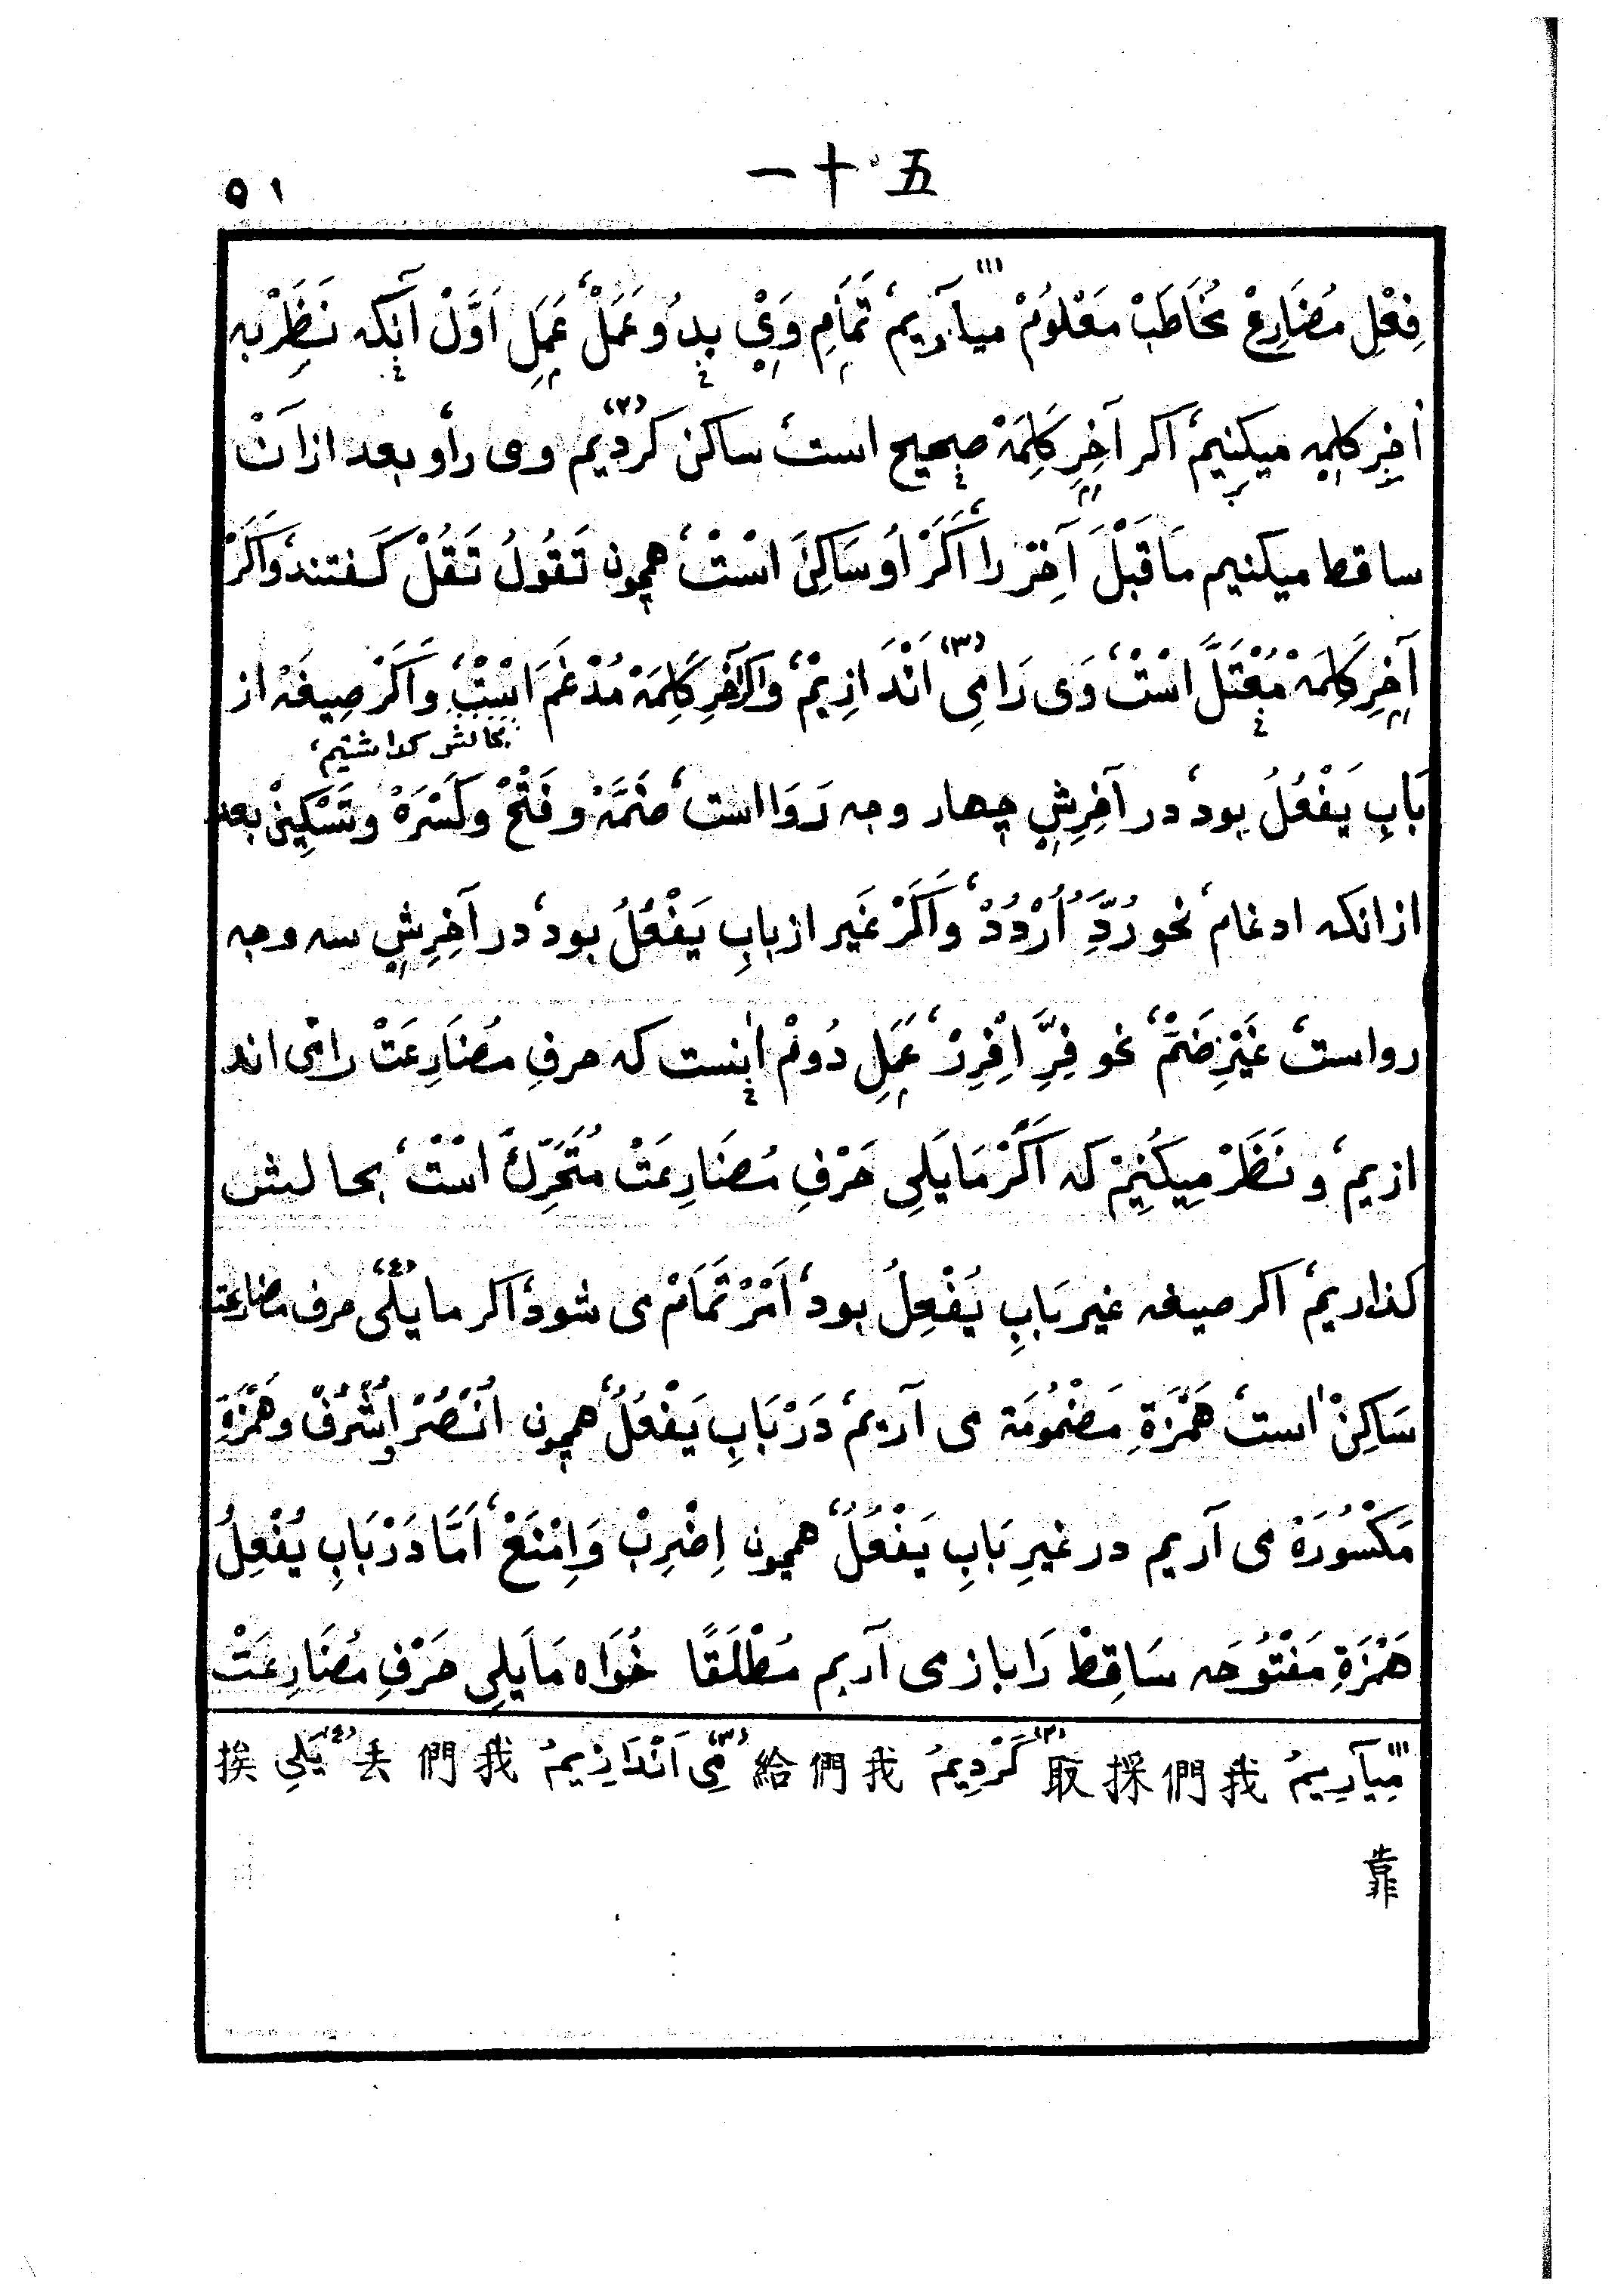 一十五
٥١
فِعْلِ مُضَارِعْ مُخَاطَبْ مَعْلُومْ میآرِیم، تَمَامِ وَیْ بِدُو عَمَلْ، عَمَلِ اَوَّلْ آنکه نَظَرْ به
آخِرِ کلمه میکنیم، اکر آخِرِ کَلِمَهْ صحیح است، ساکن کردیم وی را، و بعد ازانْ
ساقط میکنیم مَاقَبْلَ آخِرْ را اَکَرْ اُو سَاکِنْ اسْتْ، همچون تَقُولُ تَقُلْ کَفتند، وَاَکَرْ
آخِرِ کَلِمَهْ مُعْتَلّ اسْتْ، وَی رَا مِی اَنْدَازِیمْ، واکر آخِرِ کَلِمَهْ مُدْغَمَ اسْتْ، وَاَکَرْ صِیغَهْ از
بحالش کذاشتیم،
بَابِ یَفْعُلُ بود، در آخِرِشِ چهار وجه رَوَا است، ضَمَّهْ و فَتْحْ وکَسْرَهْ وتَسْکِینْ بعد
ازانکه ادغام، نحو رُدَّ اُرْدُدْ، وَاَکَرْ غَیر از بابِ یَفْعُلُ بود، در آخِرِشِ سه وجه
رواست، غَیْرِ ضَمّْ، نحو فِرَّ اِفْرِرْ، عَمَلِ دُومْ اینست که حرفِ مُضَارِعَتْ رامی اند
ازیم، و نَظَرْ مِیکُنِیمْ که اَکَرْ مَایَلِی حَرْفِ مُضَارِعَتْ مُتَحَرِّكْ اسْتْ، بحالش
کذاریم، اکر صیغه غیر بَابِ یُفْعِلُ بود، اَمْرْ تَمَامْ می شود، اکر مایَلِی حرف مضارعت
سَاکِنْ است، هَمْزَةِ مَضْمُومَة می آریم، دَرْ بَابِ یَفْعُلُ، همچون اُنْصُرْ اُشْرُفْ وهَمْزَةِ
مَکْسُورَهْ می آریم در غیرِ بَابِ یَفْعُلُ، همچون اِضْرِبْ وَاِمْنَعْ، اَمَّا دَرْ بَابِ یُفْعِلُ
هَمْزَةِ مَفْتُوحَه سَاقِطْ رَا باز می آریم مُطْلَقًا خُوَاه مَایَلِی حَرْفِ مُضَارِعَتْ
(١) مِیآرِیمُ 我們採取 (٢) کَرْدِیمُ 我們給 (٣) مِی اَنْدَازِیمُ 我們去 (٤) یَلِی 挨
靠